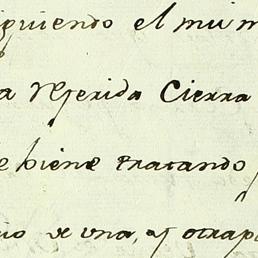 siguiendo el mi m
a referida Cierra
e biene tratando
io de una, y otra p